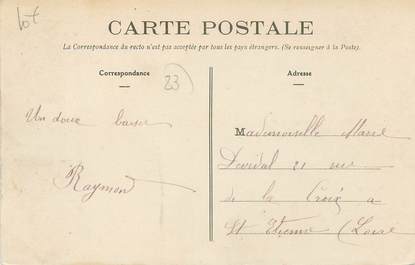 lot
CARTE POSTALE
La Correspondance du recto n'est pas acceptée par tous les pays étrangers. (Se renseigner à la Poste).
Correspondance
23
Un doux baiser
Raymon
Adresse
Mademoiselle Marie
21 rue
de la Croix a
St Etienne (Loire